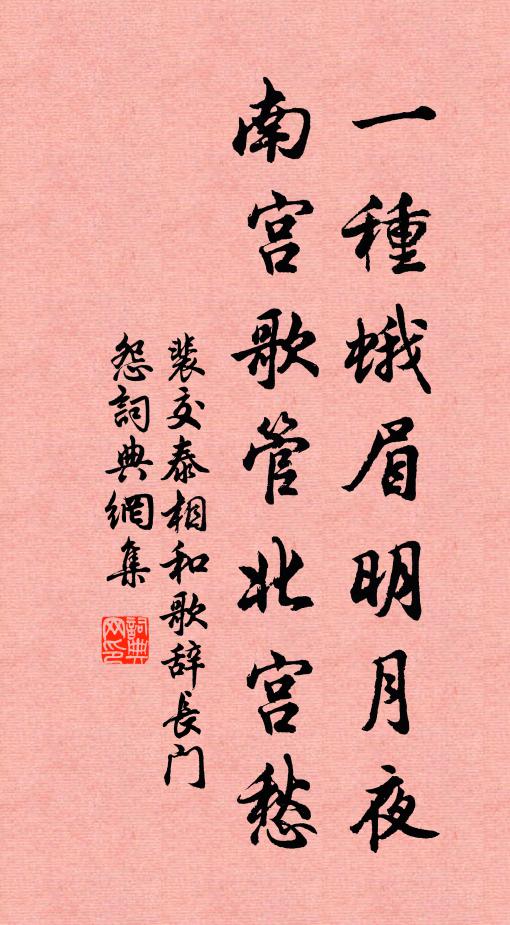 一種蛾眉明月夜
南宫歌管北宫愁
裴交泰相和歌辞長门
怨詞典網集
詞典网印